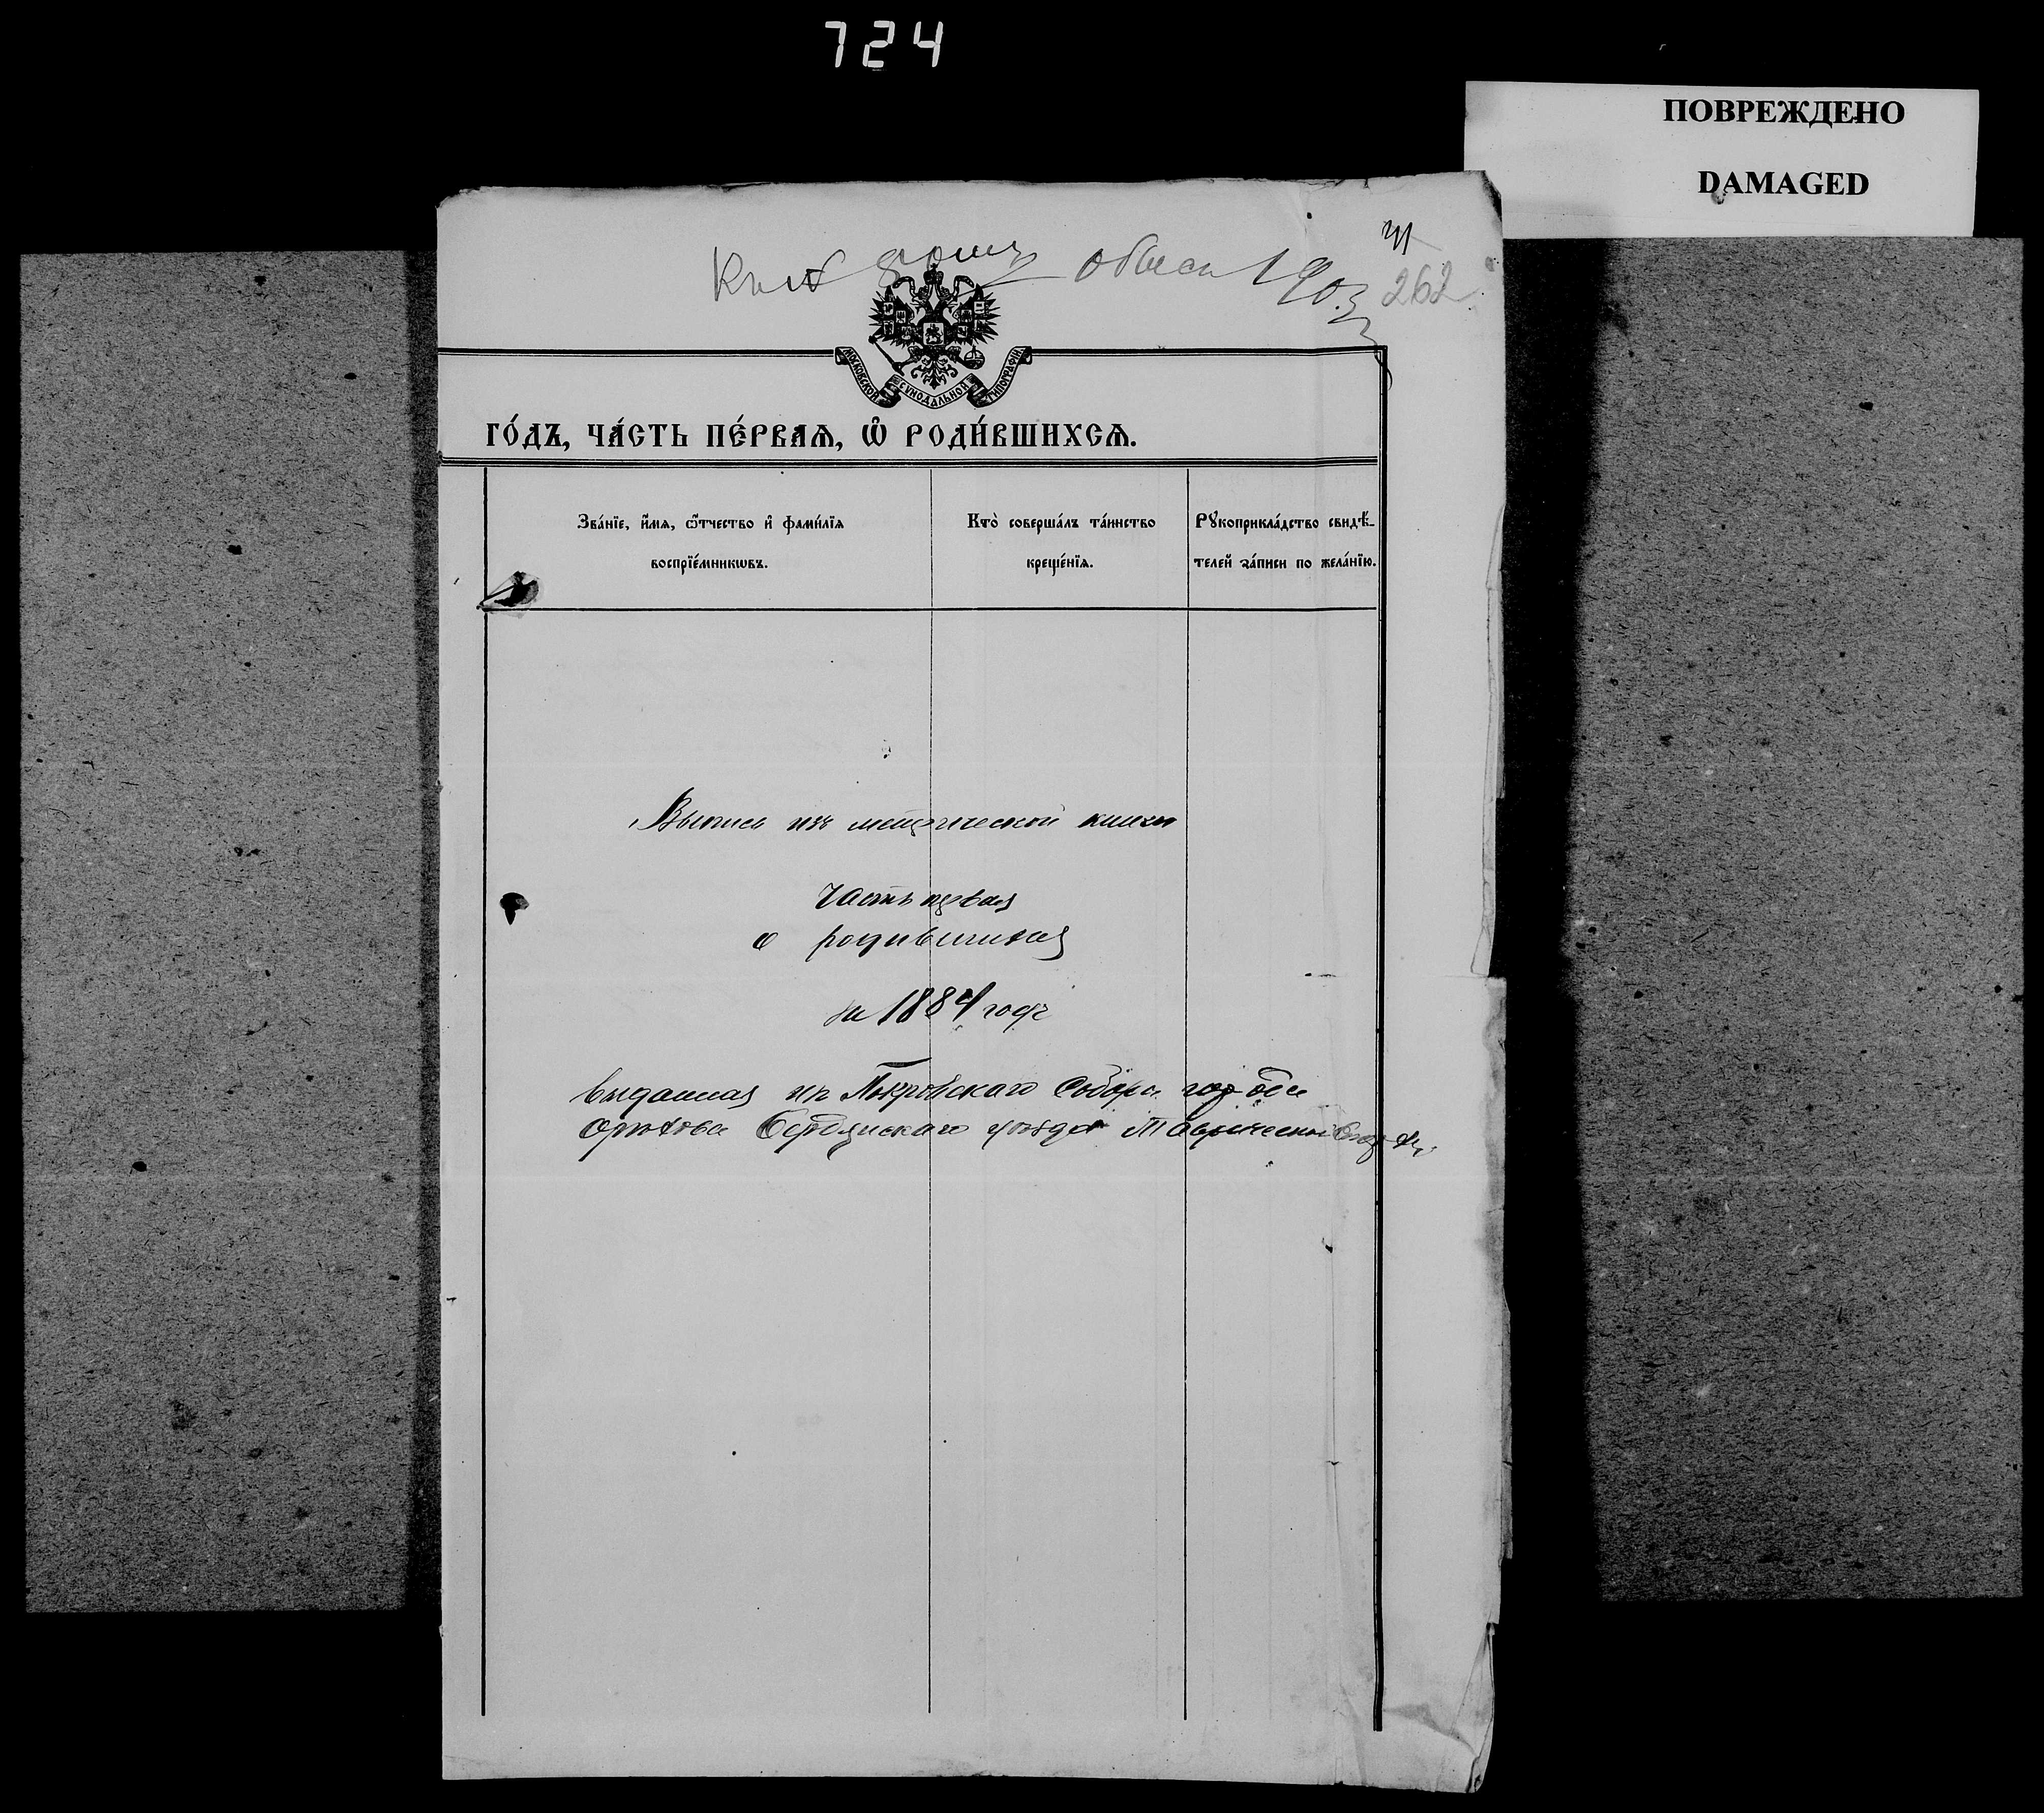 724
ПОВРЕЖДЕНО
DAMAGED
1903
262
МОСКОВСКОЙ СѴНОДАЛЬНОЙ ТИПОГРАФІИ
ГО́ДЪ, ЧА́СТЬ ПЕ́РВАѦ, Ѽ РОДИ́ВШИХСѦ.
Зва́нїе, и҆́мѧ, ѻ҆́тчество и҆ фами́лїѧ
воспрїе́мникѡвъ.
Кто̀ соверша́лъ та́инство
креще́нїѧ.
Рꙋкоприкла́дство свидѣ́-
телей за́писи по жела́нїю.
Выпись изъ метрической книги
Часть первая
о родившихся
за 1884 годъ
выданная изъ Покровскаго Собора города
Орѣхова Бердянскаго уѣзда Таврической